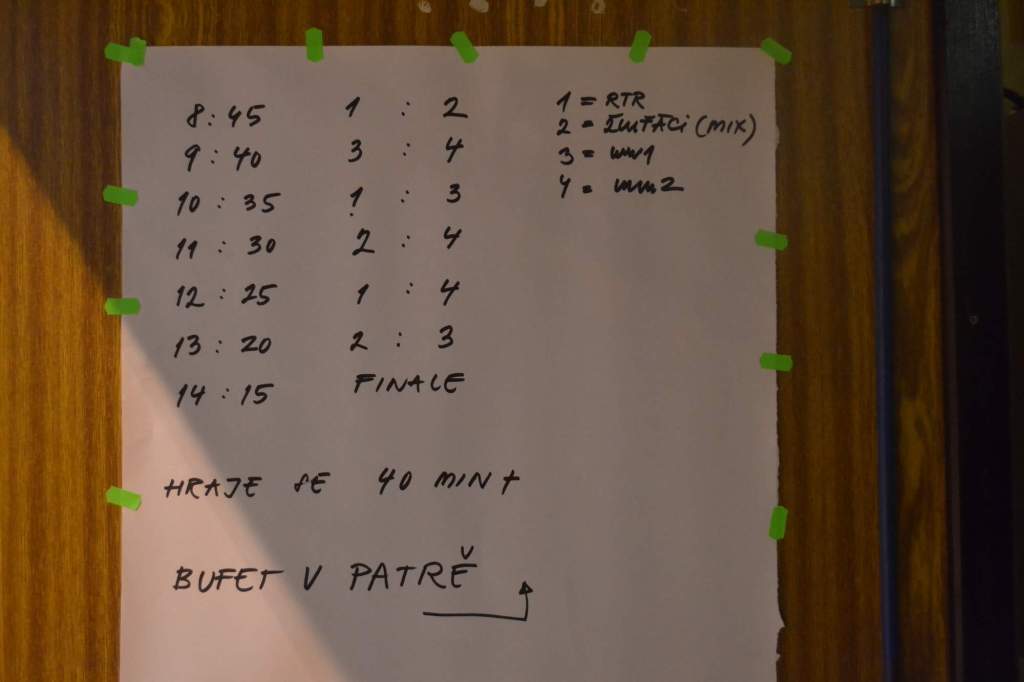 8:45 1 : 2
9:40 3 : 4
10:35 1 : 3
11:30 2 : 4
12:25 1 : 4
13:20 2 : 3
14:15 FINALE
1 = RTR
2 = (MIX)
3 =
4 =
HRAJE SE 40 MIN +
BUFET V PATŘE